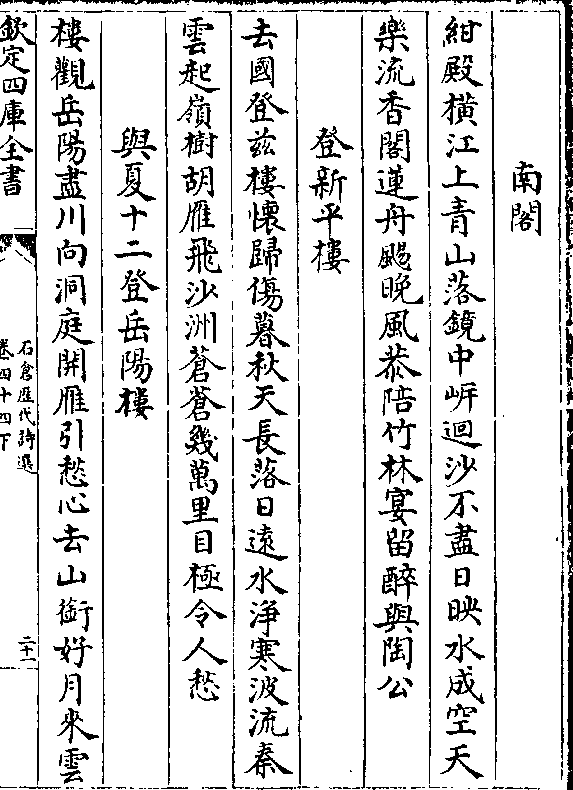 南閣
紺殿横江上青山落鏡中岸迴沙不盡日映水成空天
樂流香閣蓮舟颺晚風恭陪竹林宴留醉與陶公
登新平樓
去國登兹樓懷歸傷暮秋天長落日遠水浄寒波流秦
雲起嶺樹胡雁飛沙洲蒼蒼幾萬里目極令人愁
與夏十二登岳陽樓
樓觀岳陽盡川向洞庭開雁引愁心去山銜好月來雲
欽定四庫全書
石倉歴代詩選
卷四十四下
二十一